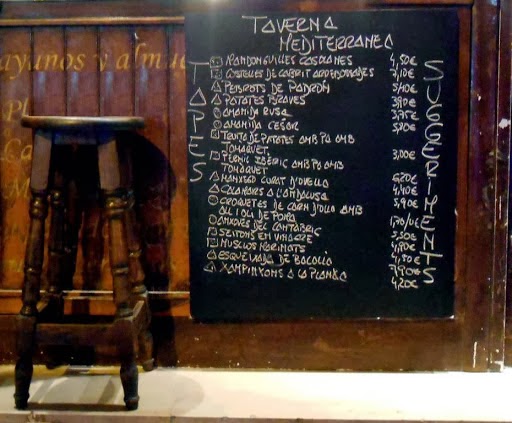 TAVERNA
MEDITERRANEA
TAPES
SUGGERIMENTS
MANDONGUILLES CASOLANES 4,50€
COSTELLES DE CABRIT ARREBOSSADES 7,10€
PEBROTS DE PADRON
PATATES BRAVES 3,90€
AMANIDA RUSA 3,75€
AMANIDA CESAR
TRUITA DE PATATES AMB PA AMB
TOMAQUET 3,00€
PERNIL IBERIC AMB PA AMB
TOMAQUET
MANXEGO CURAT D'OVELLA 6,20€
CALAMARS A L'ANDALUSA 4,40€
CROQUETES DE CARN D'OLLA AMB 5,90€
ALL I OLI DE POMA
ANXOVES DEL CANTABRIC 1,70/U€
SEITONS EM VINAGRE 5,50€
MUSCLOS MARINATS 4,80€
ESQUEIXADA DE BACALLA 4,80€
XAMPINYONS A LA PLANXA 7,90€
4,20€
ayunos y almue